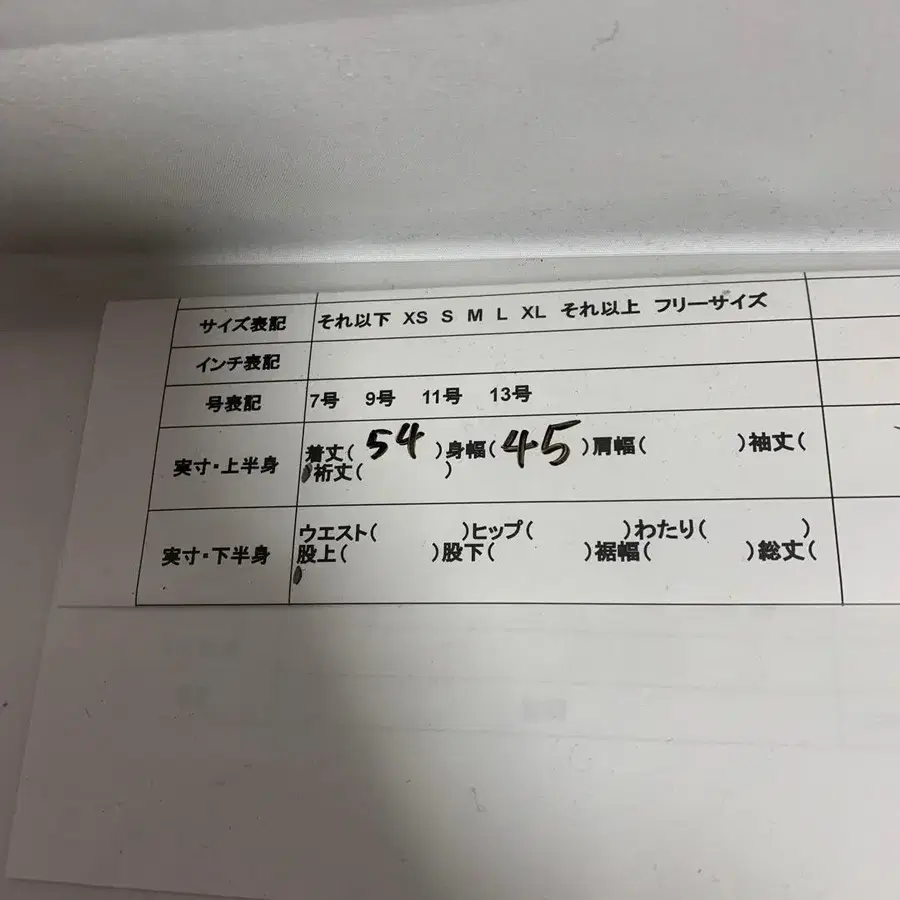 サイズ表記 それ以下 XS S M L XL それ以上 フリーサイズ
インチ表記
号表記 7号 9号 11号 13号
実寸・上半身 着丈( 54 )身幅( 45 )肩幅( )袖丈(
裄丈( )
実寸・下半身 ウエスト( )ヒップ( )わたり( )
股上( )股下( )裾幅( )総丈(